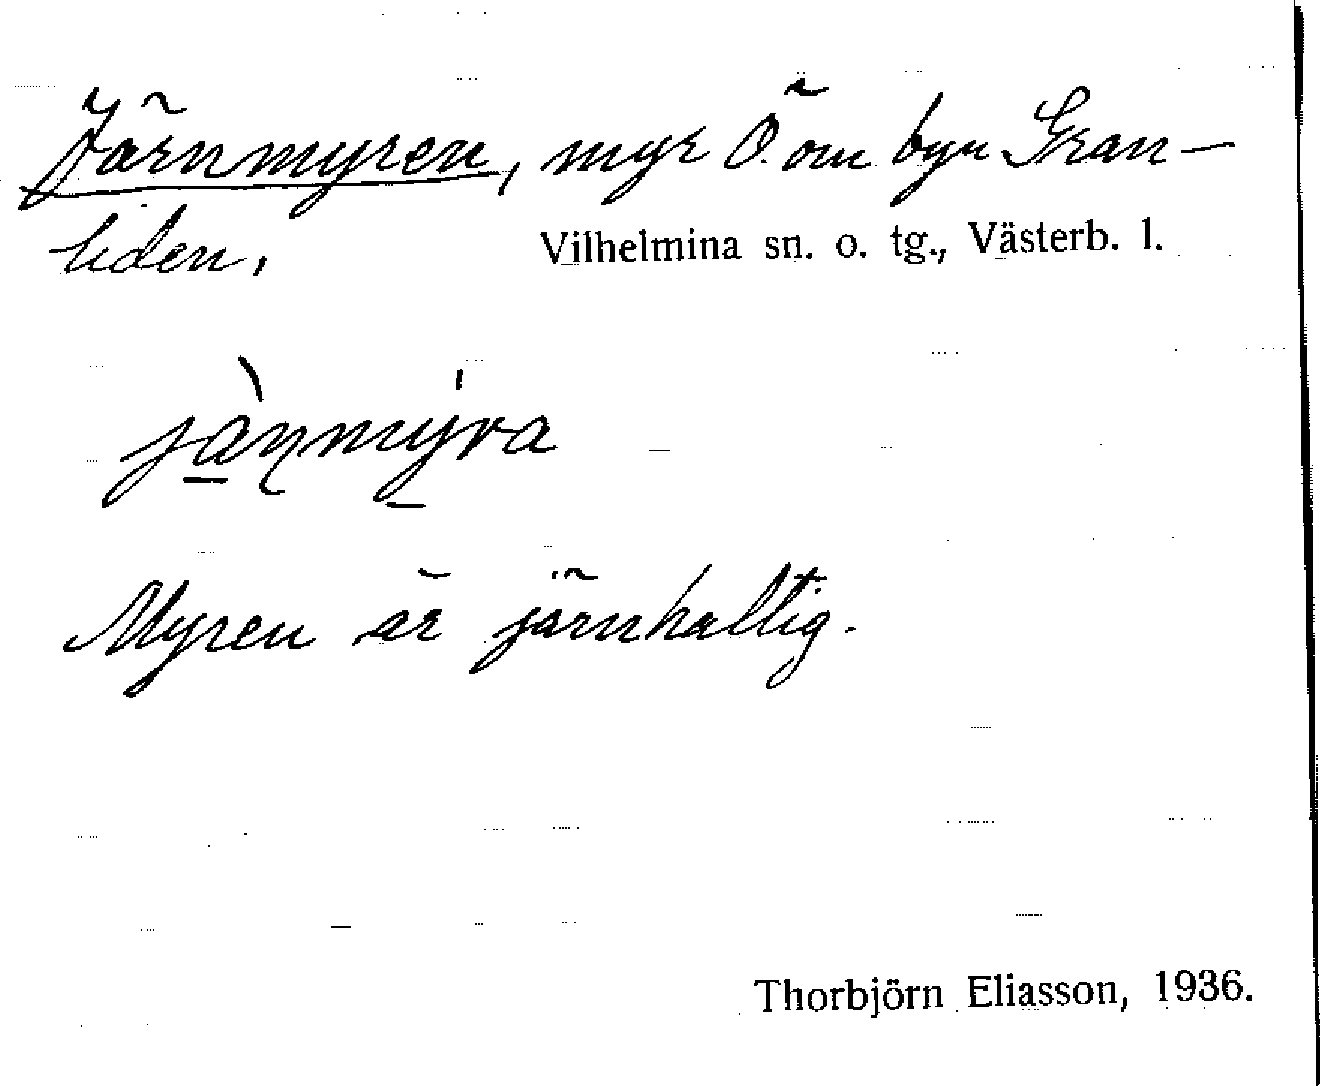 Järnmyren, myr Ö om byn Gran-
liden,
Vilhelmina sn. o. tg., Västerb. l.
jäṇmyra
Myren är järnhaltig.
Thorbjörn Eliasson, 1936.